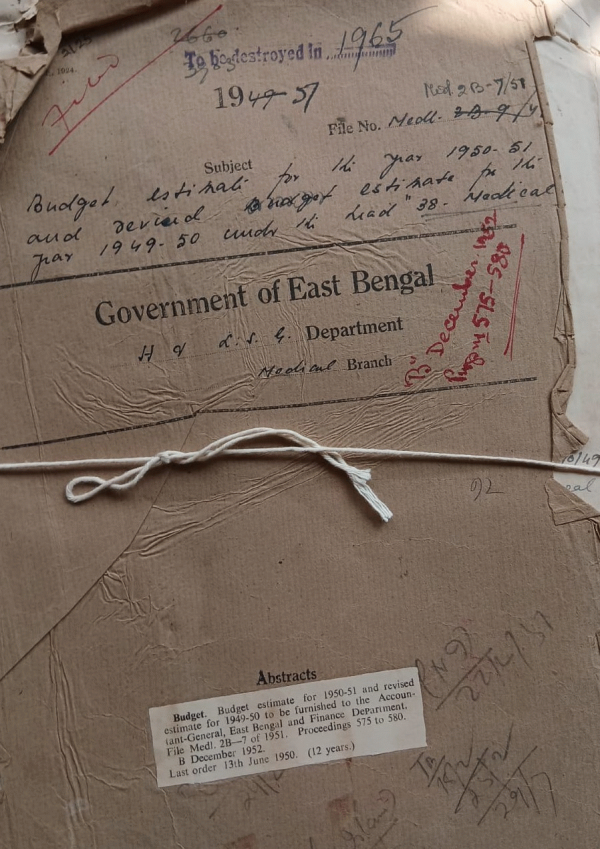 To be destroyed in 1965
1949-51
Medl 2B-7/51
File No. Medl. 2B-9/4
Subject
Budget estimate for the year 1950-51
and revised budget estimate for the
year 1949-50 under the head "38-Medical
Government of East Bengal
H & L. S. G. Department
Medical Branch
"B" December 1952
Progs 575-580
92
Abstracts
Budget. Budget estimate for 1950-51 and revised
estimate for 1949-50 to be furnished to the Accoun-
tant-General, East Bengal and Finance Department.
File Medl. 2B—7 of 1951. Proceedings 575 to 580.
B December 1952.
Last order 13th June 1950. (12 years.)